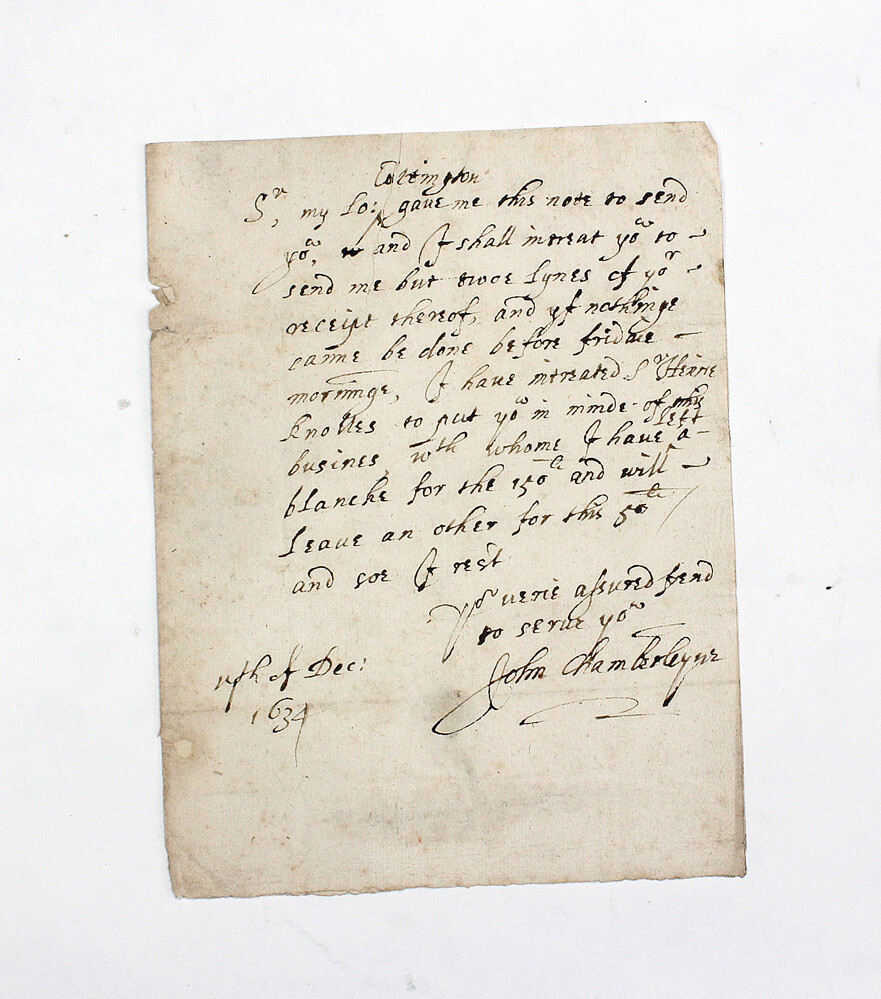 Cottington
Sr, my Lo: gave me this note to send
you, and I shall intreat you to
send me but twoe lynes of yor
receipt thereof, and yf nothinge
canne be done before fridaie
morninge, I have intreated Sr Henrie
Knolles to put you in minde of this
left
busines wth whome I have a
blancke for the 150li and will
leave an other for this 50li
and soe I rest
Yor verie assured frend
to serve you
John Chamberleyne
of Dec:
1634